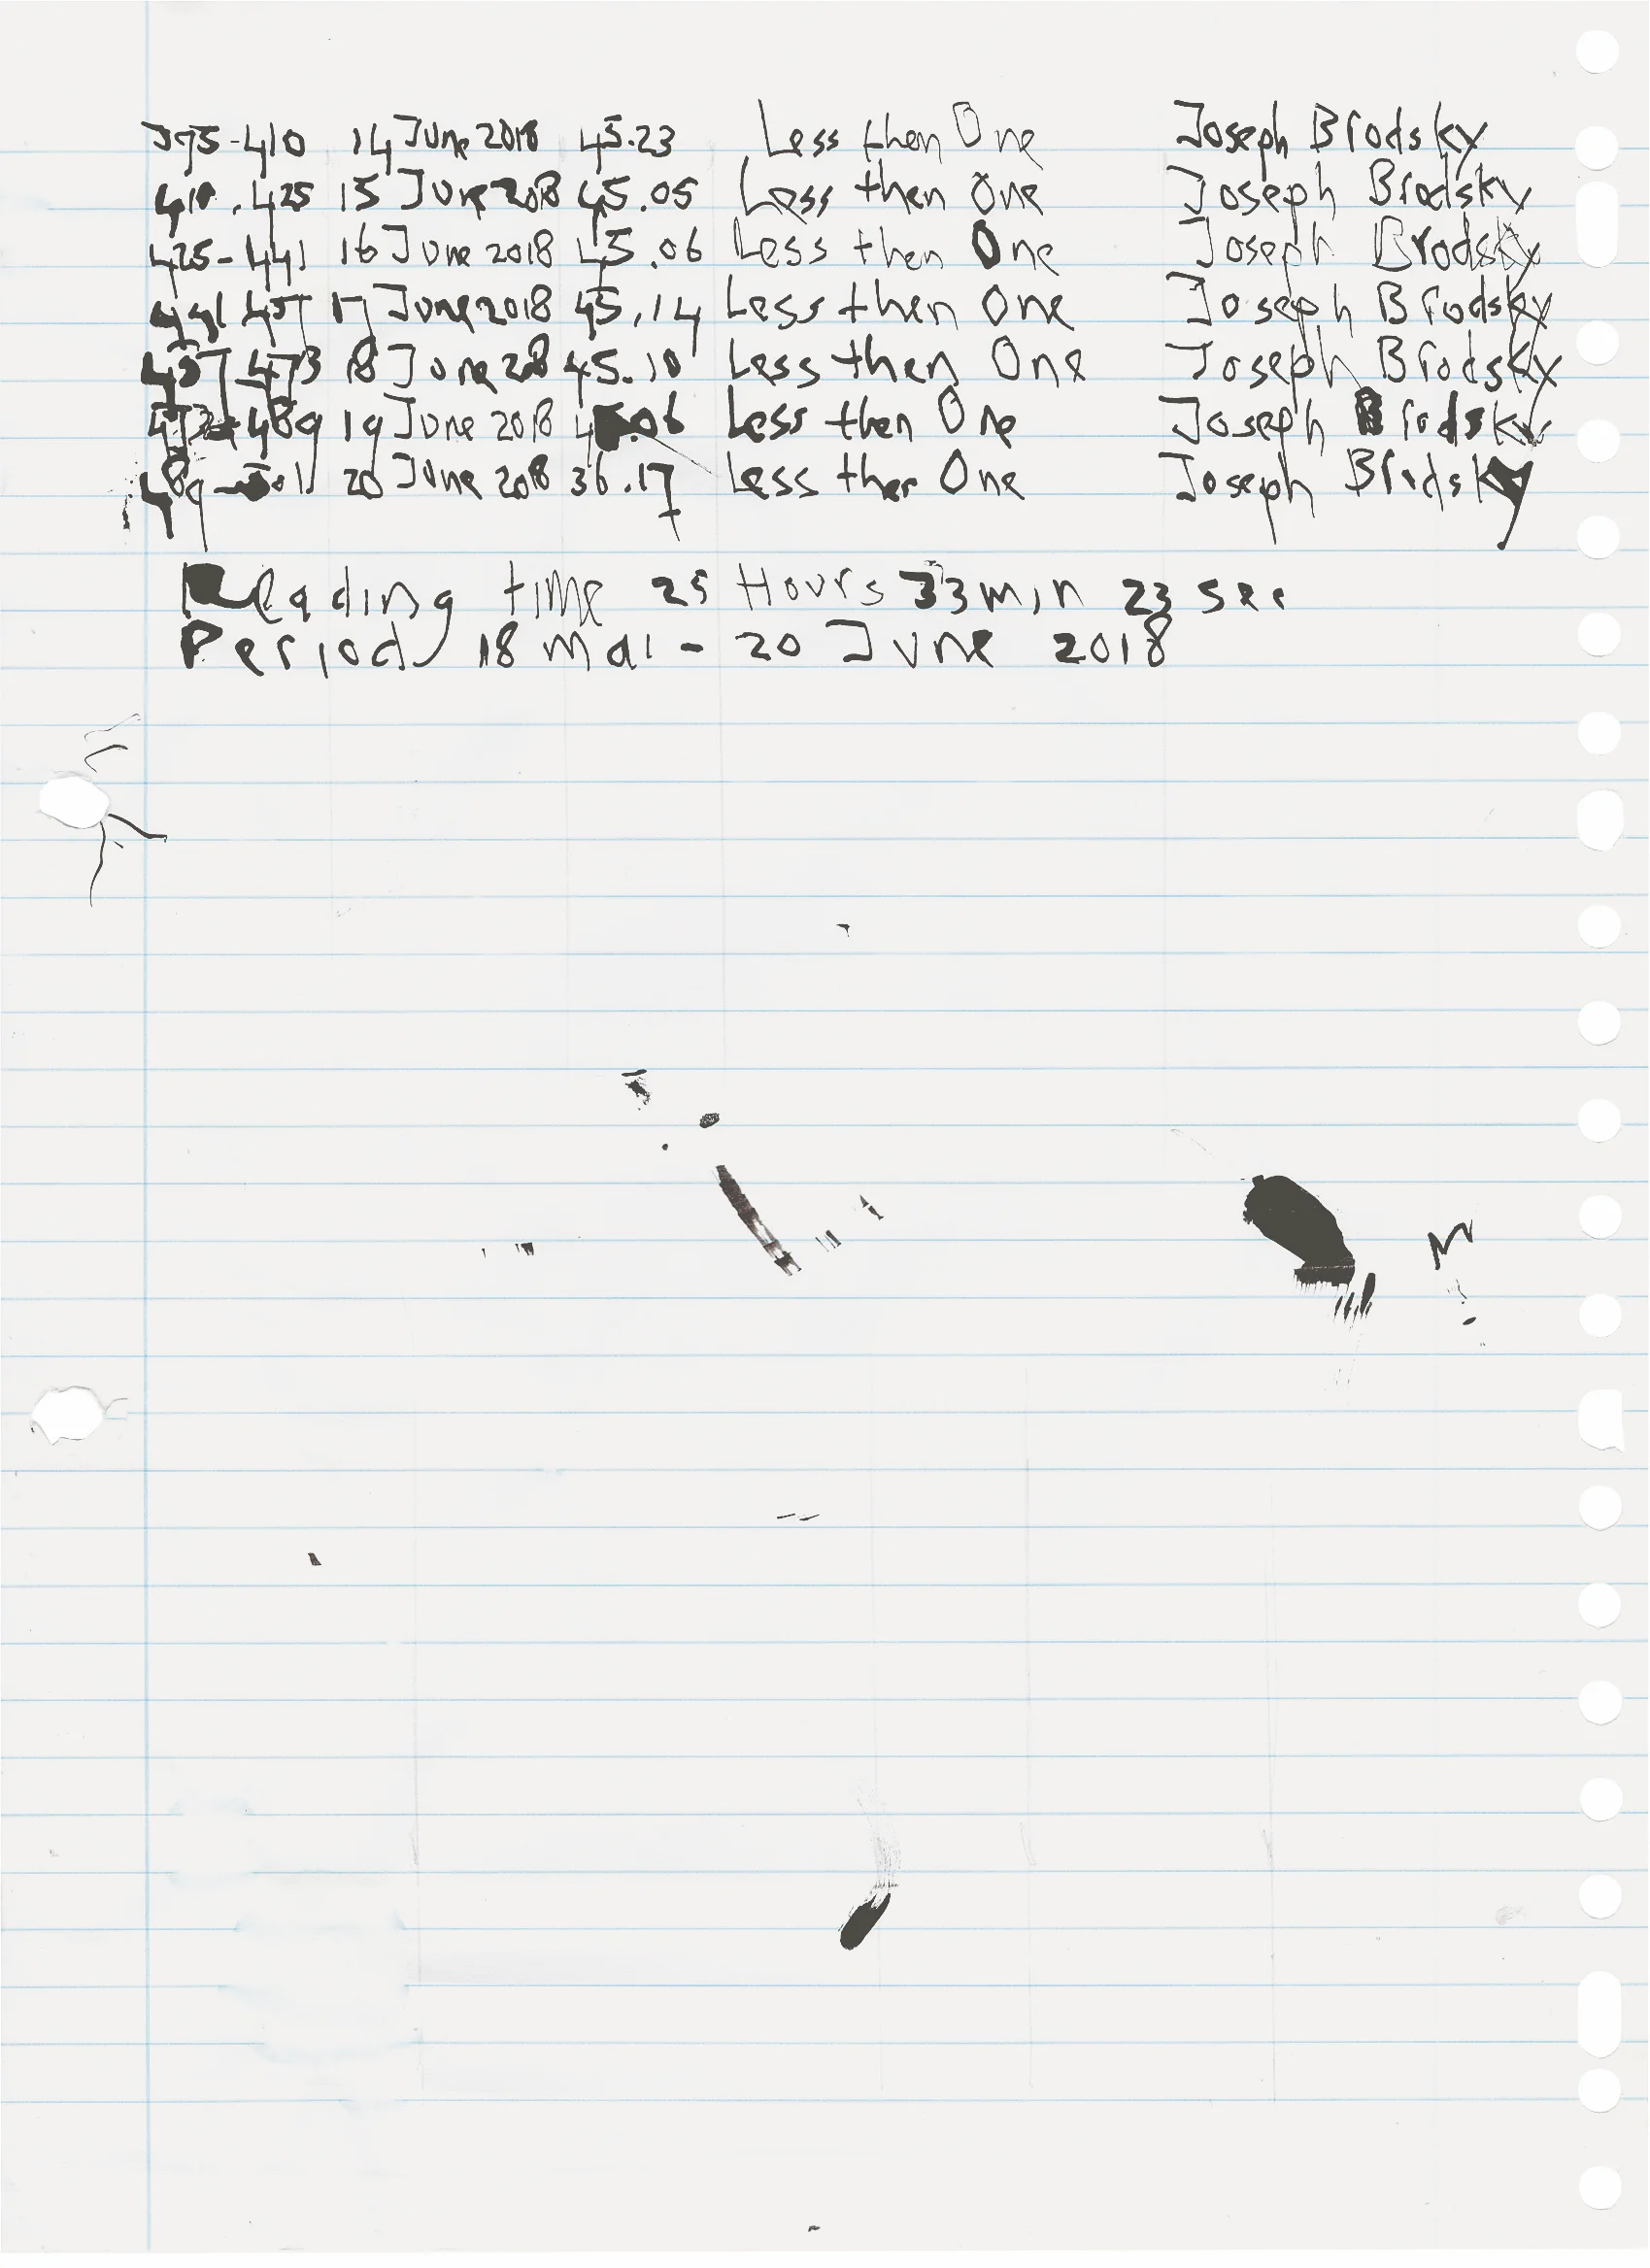 395-410 14 June 2018 45.23 Less then One Joseph Brodsky
410.425 15 June 2018 45.05 Less then One Joseph Brodsky
425-441 16 June 2018 45.06 Less then One Joseph Brodsky
441 457 17 June 2018 45.14 Less then One Joseph Brodsky
457-473 18 June 2018 45.10 Less then One Joseph Brodsky
473-489 19 June 2018 45.06 Less then One Joseph Brodsky
489-501 20 June 2018 36.17 Less then One Joseph Brodsky
Reading time 25 Hours 33 min 23 sec
Period 18 mai - 20 June 2018